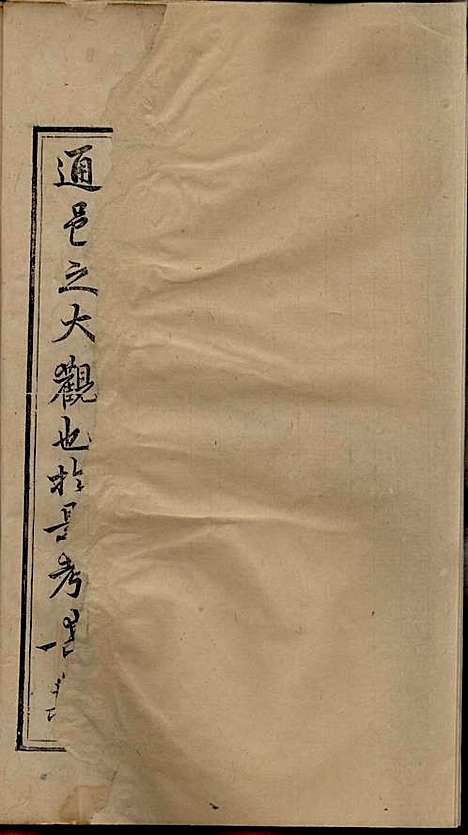 通邑之大觀也於是考